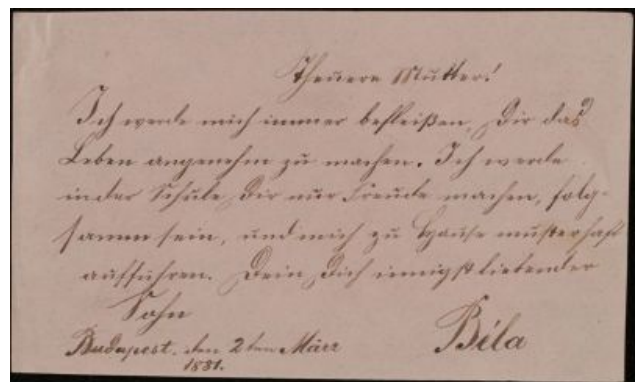 Theuere Mutter!
Ich werde mich immer befleißen, Dir das
Leben angenehm zu machen. Ich werde
in der Schule Dir nur Freude machen, folg-
samm sein, und mich zu Hause musterhaft
aufführen. Dein Dich innigst liebender
Sohn
Budapest. den 2ten März Béla
1881.